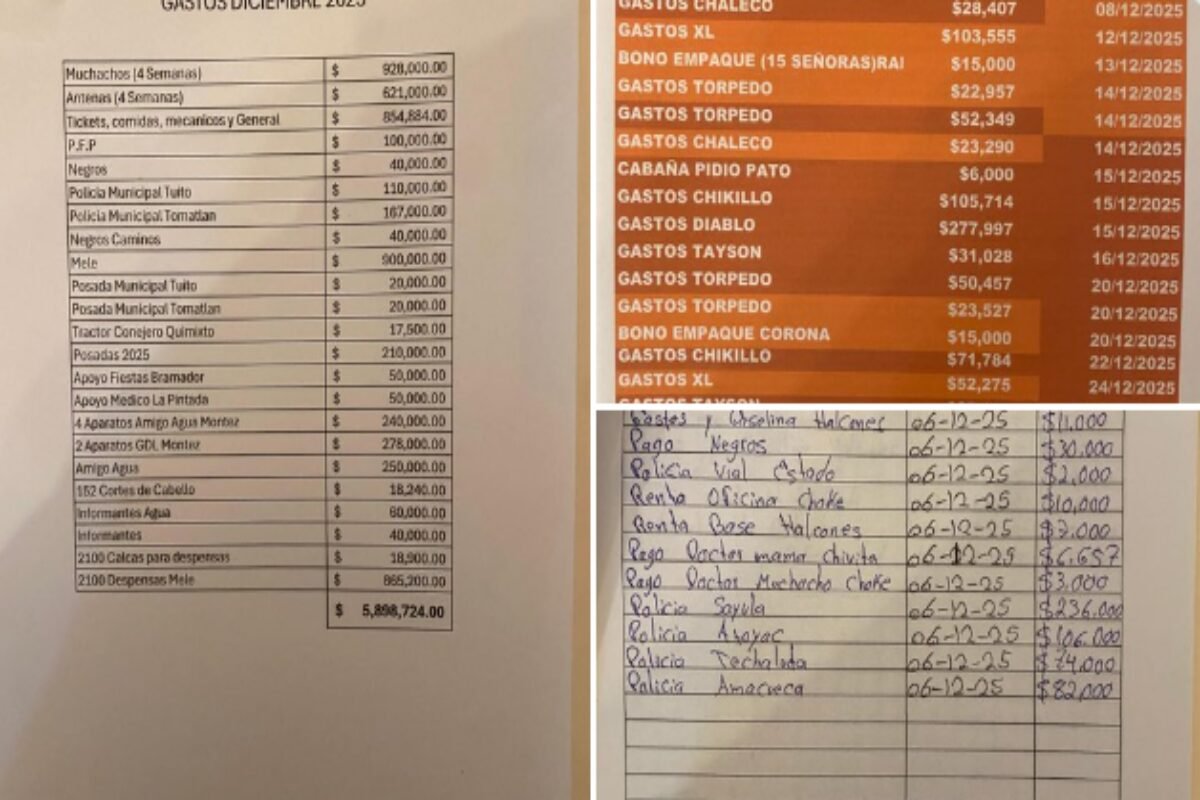 GASTOS DICIEMBRE 2025
Muchachos (4 Semanas) $ 928,000.00
Antenas (4 Semanas) $ 621,000.00
Tickets, comidas, mecanicos y General $ 854,884.00
P.F.P $ 100,000.00
Negros $ 40,000.00
Policia Municipal Tuito $ 110,000.00
Policia Municipal Tomatlan $ 167,000.00
Negros Caminos $ 40,000.00
Mele $ 900,000.00
Posada Municipal Tuito $ 20,000.00
Posada Municipal Tomatlan $ 20,000.00
Tractor Conejero Quimixto $ 17,500.00
Posadas 2025 $ 210,000.00
Apoyo Fiestas Bramador $ 50,000.00
Apoyo Medico La Pintada $ 50,000.00
4 Aparatos Amigo Agua Montez $ 240,000.00
2 Aparatos GDL Montez $ 278,000.00
Amigo Agua $ 250,000.00
152 Cortes de Cabello $ 18,240.00
Informantes Agua $ 60,000.00
Informantes $ 40,000.00
2100 Calcas para despensas $ 18,900.00
2100 Despensas Mele $ 865,200.00
$ 5,898,724.00
GASTOS CHALECO $28,407 08/12/2025
GASTOS XL $103,555 12/12/2025
BONO EMPAQUE (15 SEÑORAS)RAI $15,000 13/12/2025
GASTOS TORPEDO $22,957 14/12/2025
GASTOS TORPEDO $52,349 14/12/2025
GASTOS CHALECO $23,290 14/12/2025
CABAÑA PIDIO PATO $6,000 15/12/2025
GASTOS CHIKILLO $105,714 15/12/2025
GASTOS DIABLO $277,997 15/12/2025
GASTOS TAYSON $31,028 16/12/2025
GASTOS TORPEDO $50,457 20/12/2025
GASTOS TORPEDO $23,527 20/12/2025
BONO EMPAQUE CORONA $15,000 20/12/2025
GASTOS CHIKILLO $71,784 22/12/2025
GASTOS XL $52,275 24/12/2025
GASTOS TAYSON
Gastos y Halcones 06-12-25 $11,000
Pago Negros 06-12-25 $30.000
Policia Vial Estado 06-12-25 $2,000
Renta Oficina Choke 06-12-25 $10,000
Renta Base Halcones 06-12-25
Pago Doctor mama Chivita 06-12-25 $6.657
Pago Doctor Muchacho Choke 06-12-25 $3.000
Policia Sayula 06-12-25 $236.000
Policia Atoyac 06-12-25 $106.000
Policia Techaluta 06-12-25 $74.000
Policia Amacueca 06-12-25 $82,000